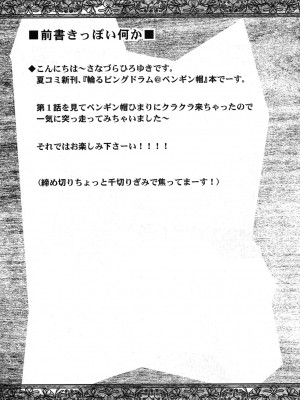 ■前書きっぽい何か■
◆こんにちは～さなづらひろゆきです。
夏コミ新刊、『輪るピングドラム@ペンギン帽』本でーす。
第１話を見てペンギン帽ひまりにクラクラ来ちゃったので
一気に突っ走ってみちゃいました～
それではお楽しみ下さーい！！！！
（締め切りちょっと千切りぎみで焦ってまーす！）